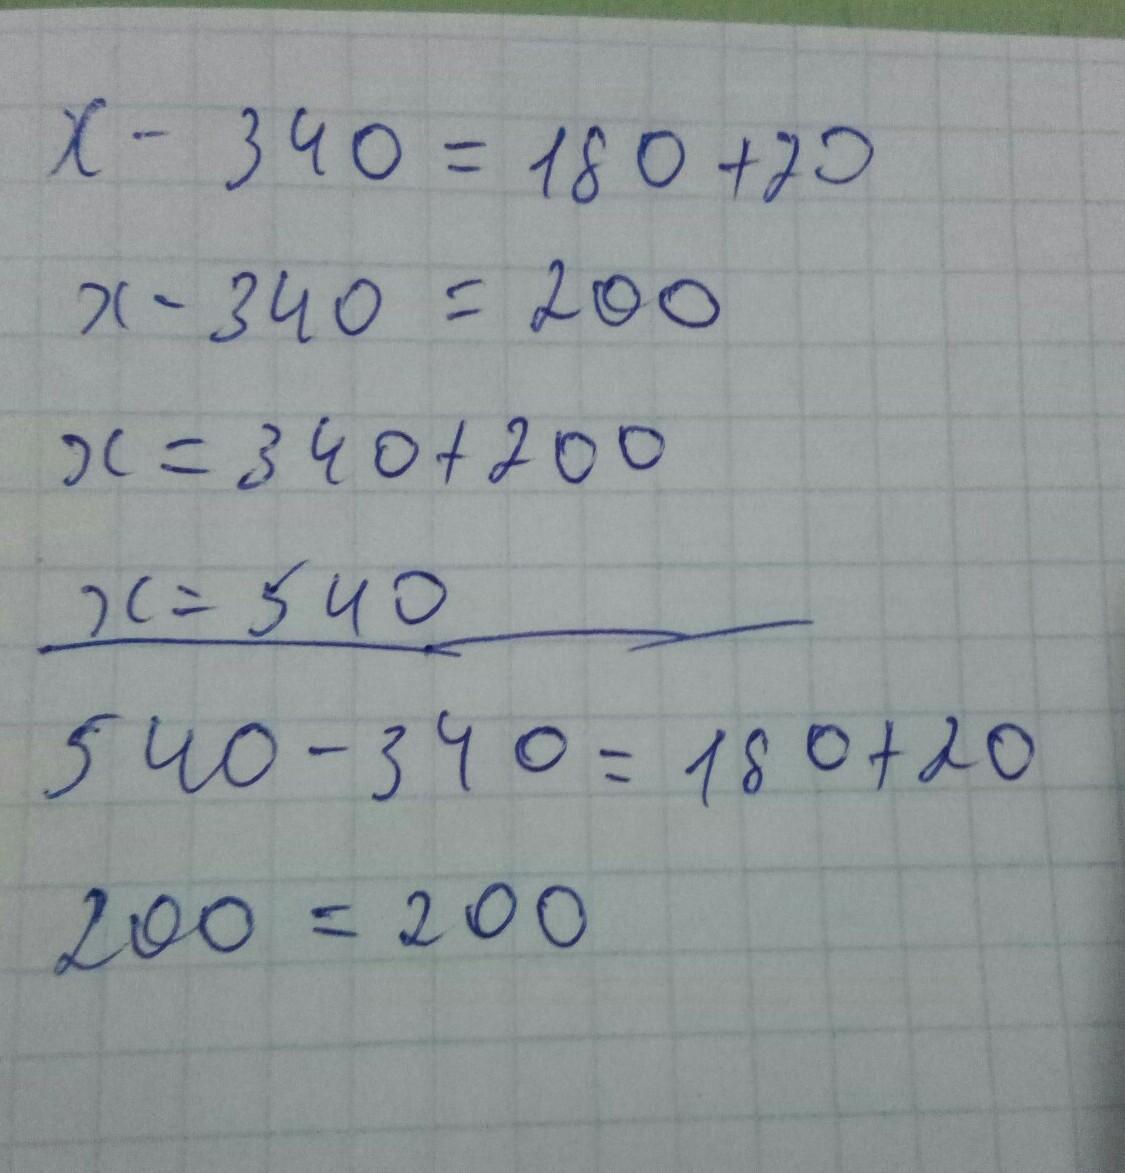 x - 340 = 180 + 20
x - 340 = 200
x = 340 + 200
x = 540
540 - 340 = 180 + 20
200 = 200